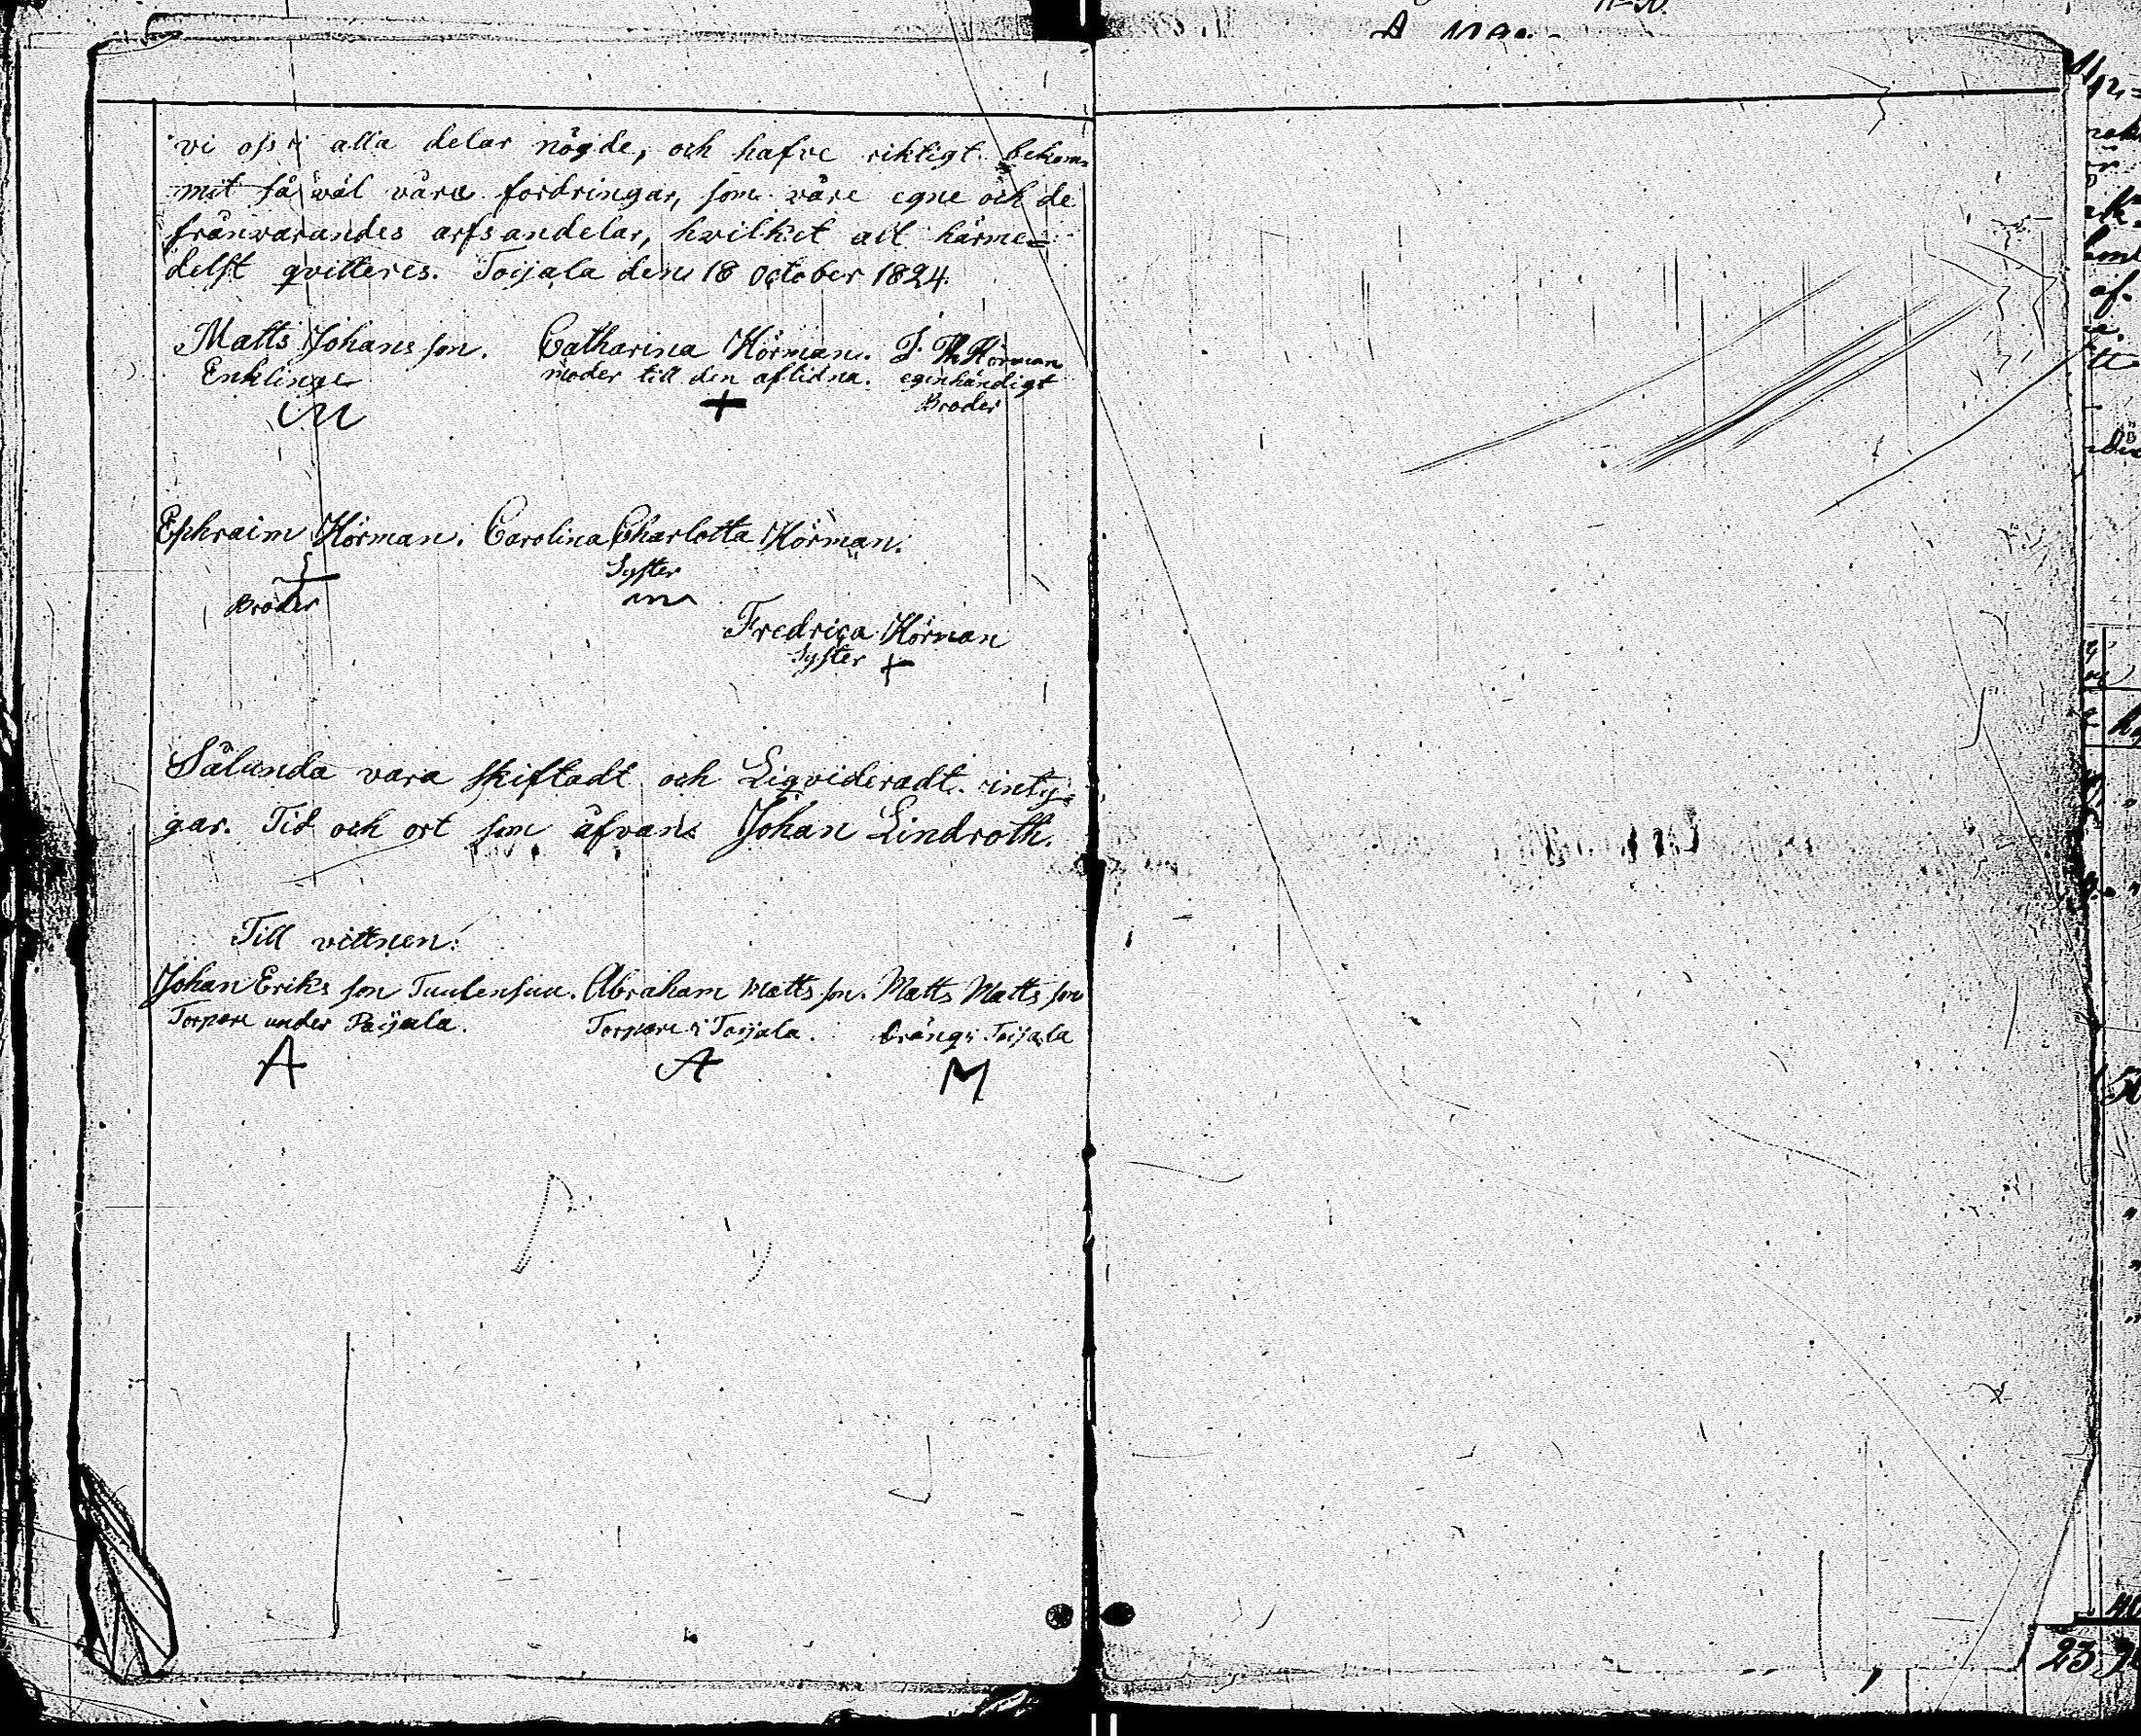 vi oss i alla delar nögde, och hafve riktigt bekom-
mit så wäl våra fordringar, som våre egne och de
frånvarandes arfsandelar, hvilket alt härme=
delst qvitteres. Toijala den 18 October 1824.
Matts Johans son. Catharina Hörman. J. Th Hörman
Enklinge moder till den aflidna. egenhändigt
Broder
Ephraim Hörman. Carolina Charlotta Hörman.
Syster
Broder
Fredrica Hörman
Syster
Sålunda vara skiftadt och Liqvideradt inty-
gar. Tid och ort som åfvan: Johan Lindroth.
Till vittnen:
Johan Eriks son Tuulensuu. Abraham Matts son. Matts Matts son
Torpare under Toijala. Torpare i Toijala. Dräng i Toijala
A A M
23